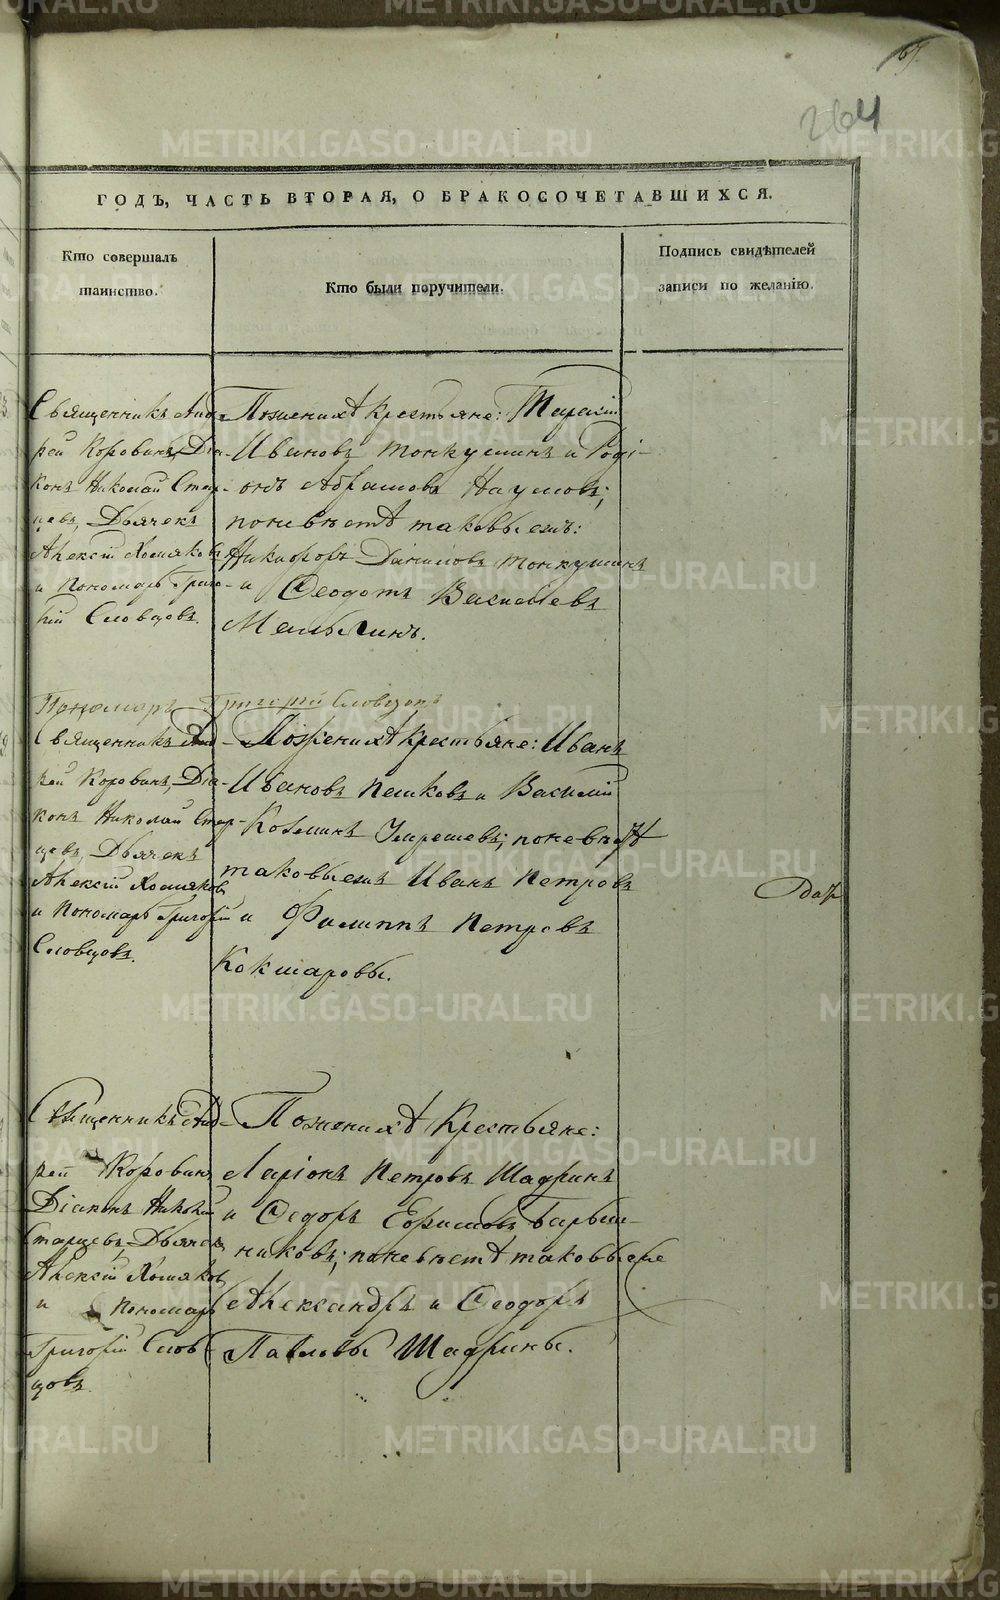 264
ГОДЪ, ЧАСТЬ ВТОРАЯ, О БРАКОСОЧЕТАВШИХСЯ.
Кто совершалъ
таинство.
Кто были поручители.
Подпись свидѣтелей
записи по желанію.
Священникъ Анд-
рей Коровинъ, Діа-
конъ Николай Стар-
цевъ, Дьячекъ
Алексѣй Хомяковъ
и Пономарь Григо-
рій Словцовъ.
По женихѣ крестьяне: Тарасій
Ивановъ Тонкушинъ и Роді-
онъ Абрамовъ Наумовъ;
по невѣстѣ таковые жъ:
Никифоръ Даниловъ Тонкушинъ
и Феодотъ Васильевъ
Мальгинъ.
Пономарь Григорій Словцовъ
Священникъ Анд-
рей Коровинъ, Діа-
конъ Николай Стар-
цевъ, Дьячекъ
Алексѣй Хомяковъ
и Пономарь Григорій
Словцовъ.
По женихѣ крестьяне: Иванъ
Ивановъ Пешковъ и Василій
Козминъ; по невѣстѣ
таковые жъ Иванъ Петровъ
и Филиппъ Петровъ
Кокшаровы.
Священникъ Анд-
рей Коровинъ
Діаконъ Николай
Старцевъ, Дьячекъ
Алексѣй Хомяковъ
и Пономарь
Григорій Слов-
цовъ.
По женихѣ Крестьяне:
Ларіонъ Петровъ Шадринъ
и Федоръ Ефимовъ
по невѣстѣ таковые же
Александръ и Феодоръ
Павловы Шадрины.
METRIKI.GASO-URAL.RU